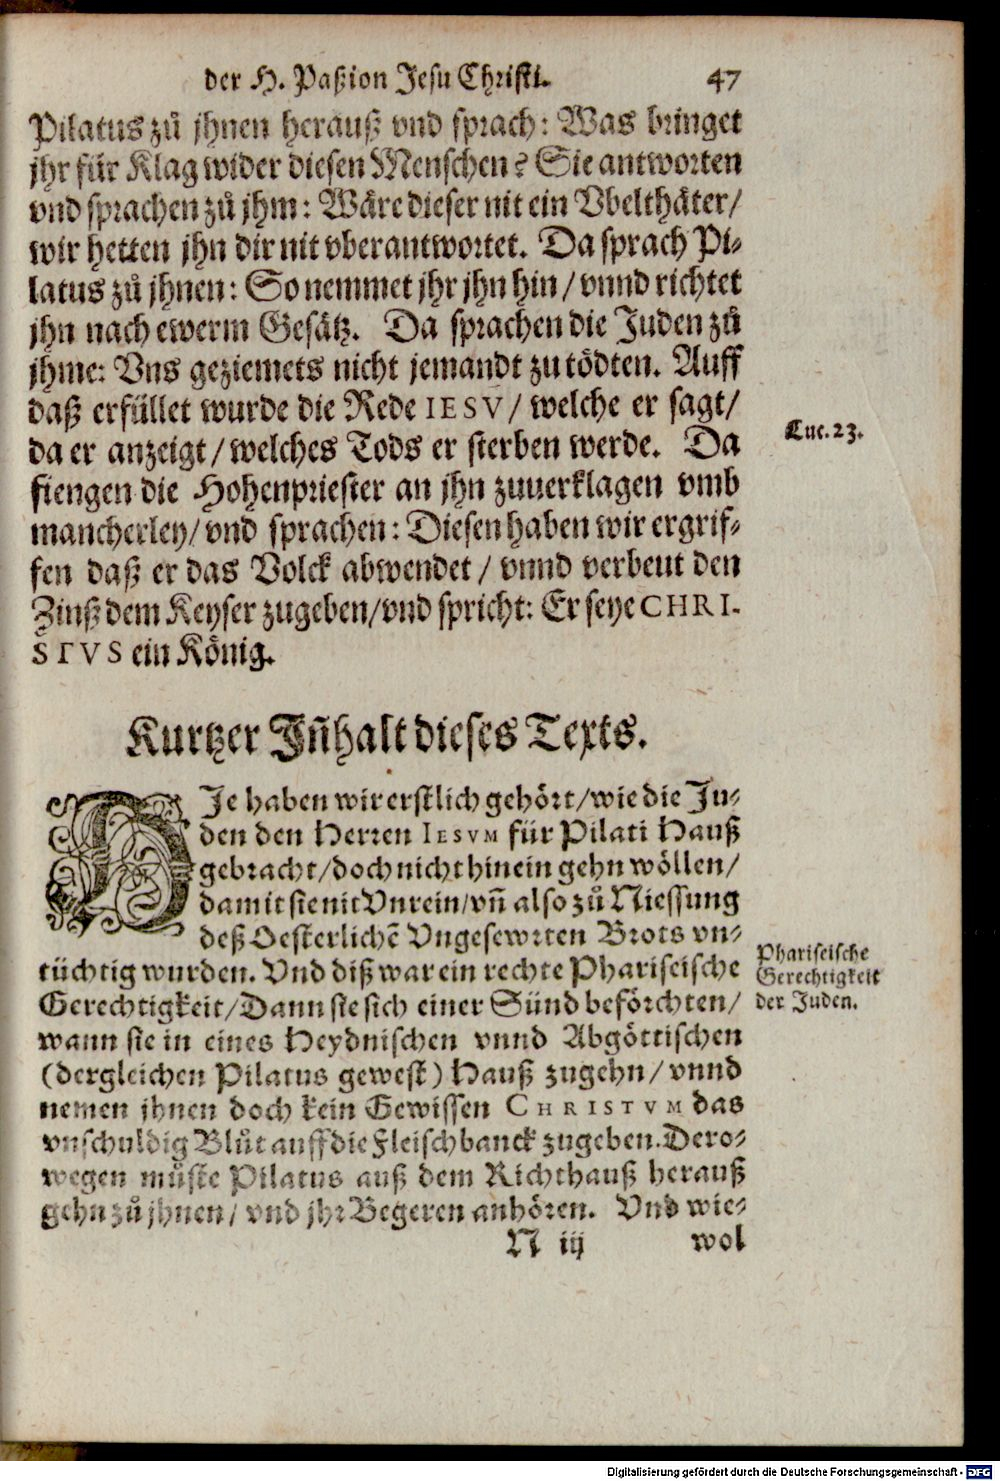 der H. Paßion Jesu Christi. 47
Pilatus zů jhnen herauß vnd sprach: Was bringet
jhr für Klag wider diesen Menschen? Sie antworten
vnd sprachen zů jhm: Wäre dieser nit ein Vbelthäter/
wir hetten jhn dir nit vberantwortet. Da sprach Pi-
latus zů jhnen: So nemmet jhr jhn hin/ vnnd richtet
jhn nach ewerm Gesätz. Da sprachen die Juden zů
jhme: Vns geziemets nicht jemandt zu tödten. Auff
daß erfüllet wurde die Rede IESV/ welche er sagt/
da er anzeigt/ welches Tods er sterben werde. Da
Luc. 23.
fiengen die Hohenpriester an jhn zuuerklagen vmb
mancherley/ vnd sprachen: Diesen haben wir ergrif-
fen daß er das Volck abwendet/ vnnd verbeut den
Zinß dem Keyser zugeben/ vnd spricht: Er seye CHRI-
STVS ein König.
Kurtzer Jñhalt dieses Texts.
HJe haben wir erstlich gehört/ wie die Ju-
den den Herren IESVM für Pilati Hauß
gebracht/ doch nicht hinein gehn wöllen/
damit sie nit Vnrein/ vñ also zů Niessung
deß Oesterlichẽ Vngesewrten Brots vn-
tüchtig wurden. Vnd diß war ein rechte Phariseische
Gerechtigkeit/ Dann sie sich einer Sünd beförchten/
Phariseische
Gerechtigkeit
der Juden.
wann sie in eines Heydnischen vnnd Abgöttischen
(dergleichen Pilatus gewest) Hauß zugehn/ vnnd
nemen jhnen doch kein Gewissen CHRISTVM das
vnschuldig Blůt auff die Fleischbanck zugeben. Dero-
wegen můste Pilatus auß dem Richthauß herauß
gehn zů jhnen/ vnd jhr Begeren anhören. Vnd wie-
N iij wol
Digitalisierung gefördert durch die Deutsche Forschungsgemeinschaft - DFG